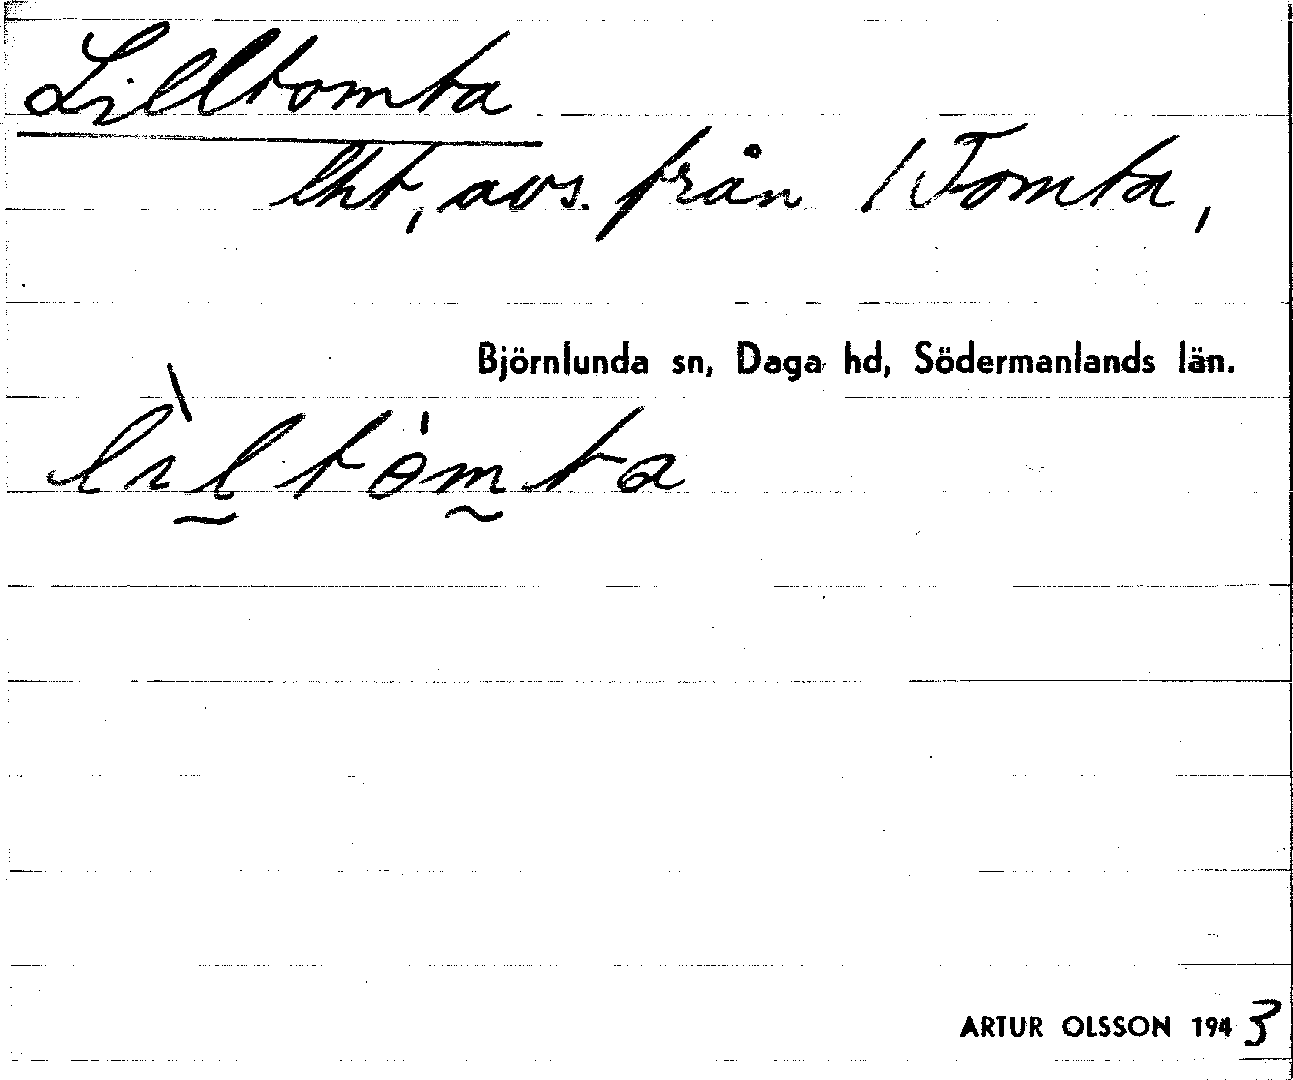 Lilltomta
lht, avs. från 1 Tomta,
Björnlunda sn, Daga hd, Södermanlands län.
lìltómta
ARTUR OLSSON 1943